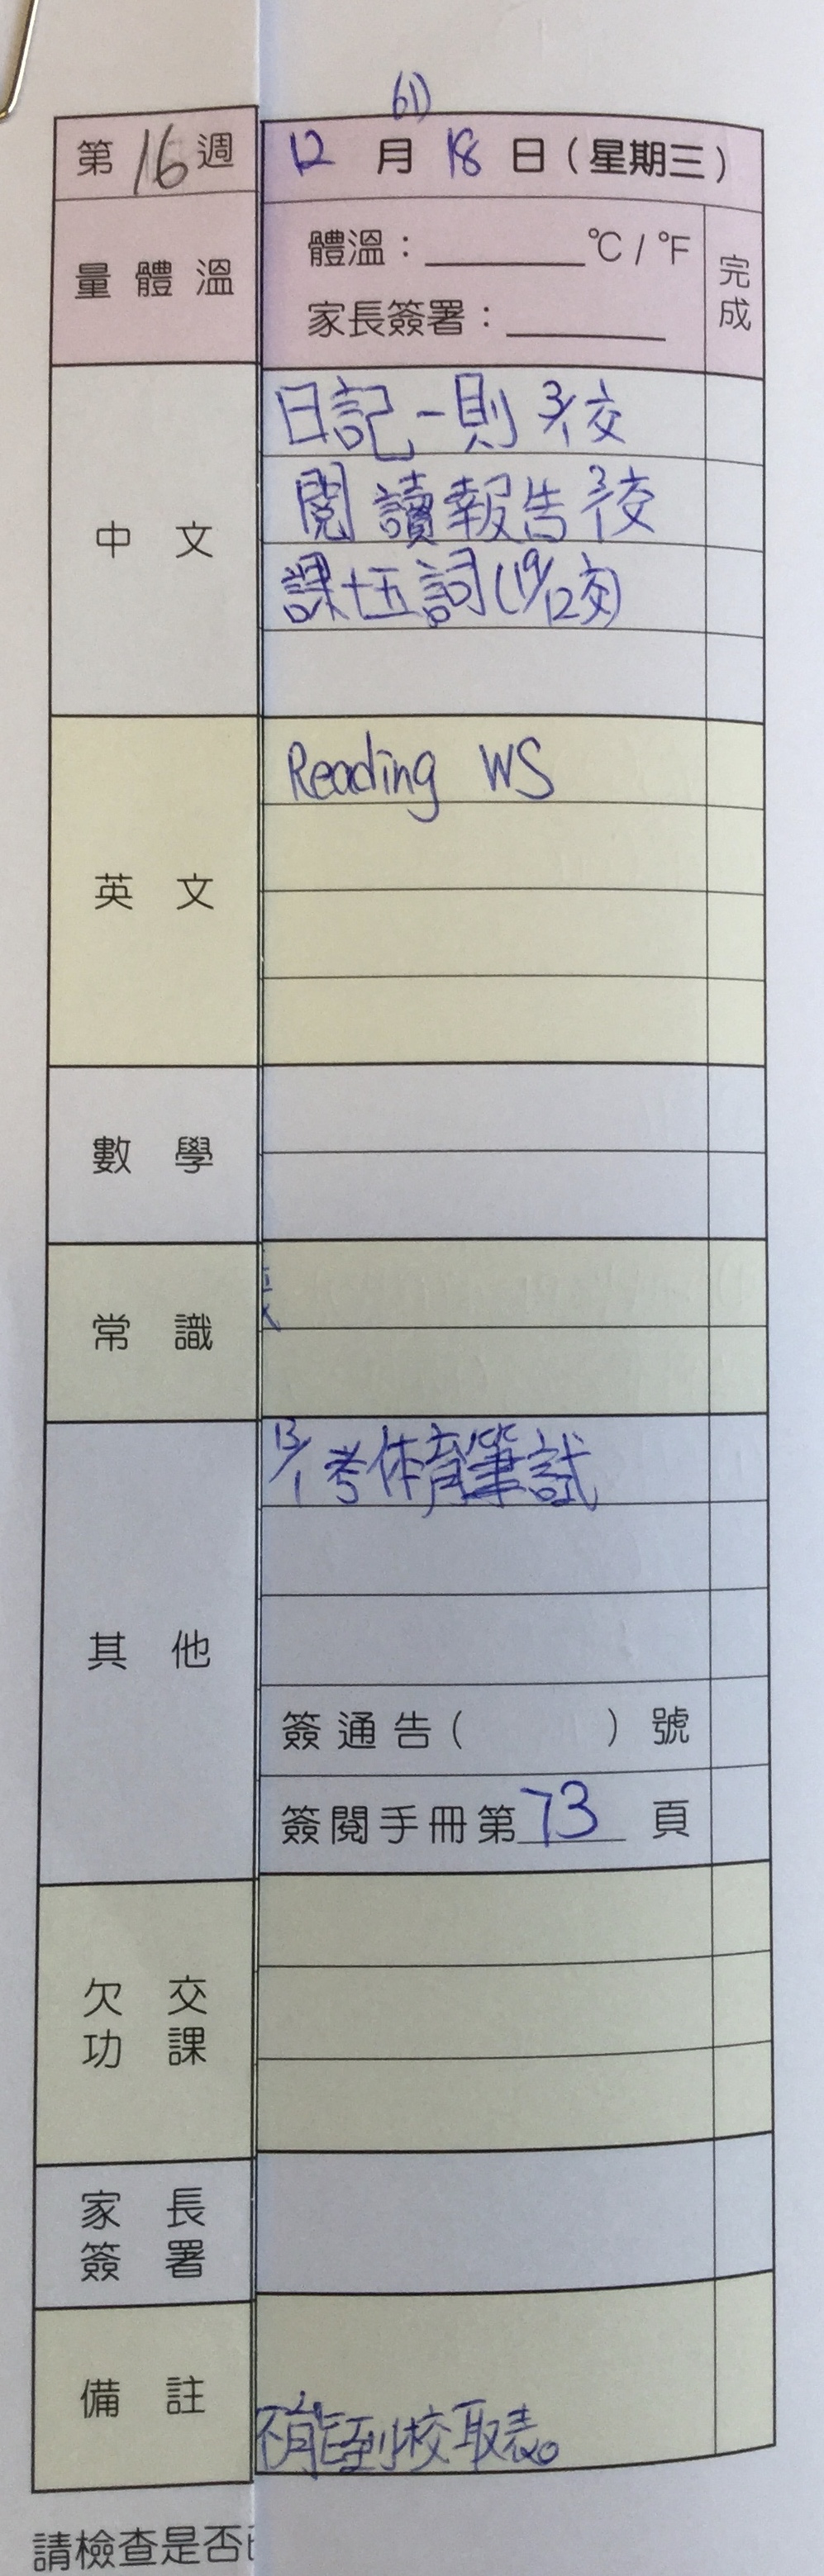 6J)
第16週 12月18日(星期三)
量體溫
體溫：______°C / °F
家長簽署：______
完成
中文
日記一則 3/1交
閱讀報告 3/1交
課十五詞(19/12交)
英文
Reading WS
數學
常識
其他
13/1考体育筆試
簽通告( )號
簽閱手冊第73頁
欠交功課
家長簽署
備註
不能到校取表。
請檢查是否